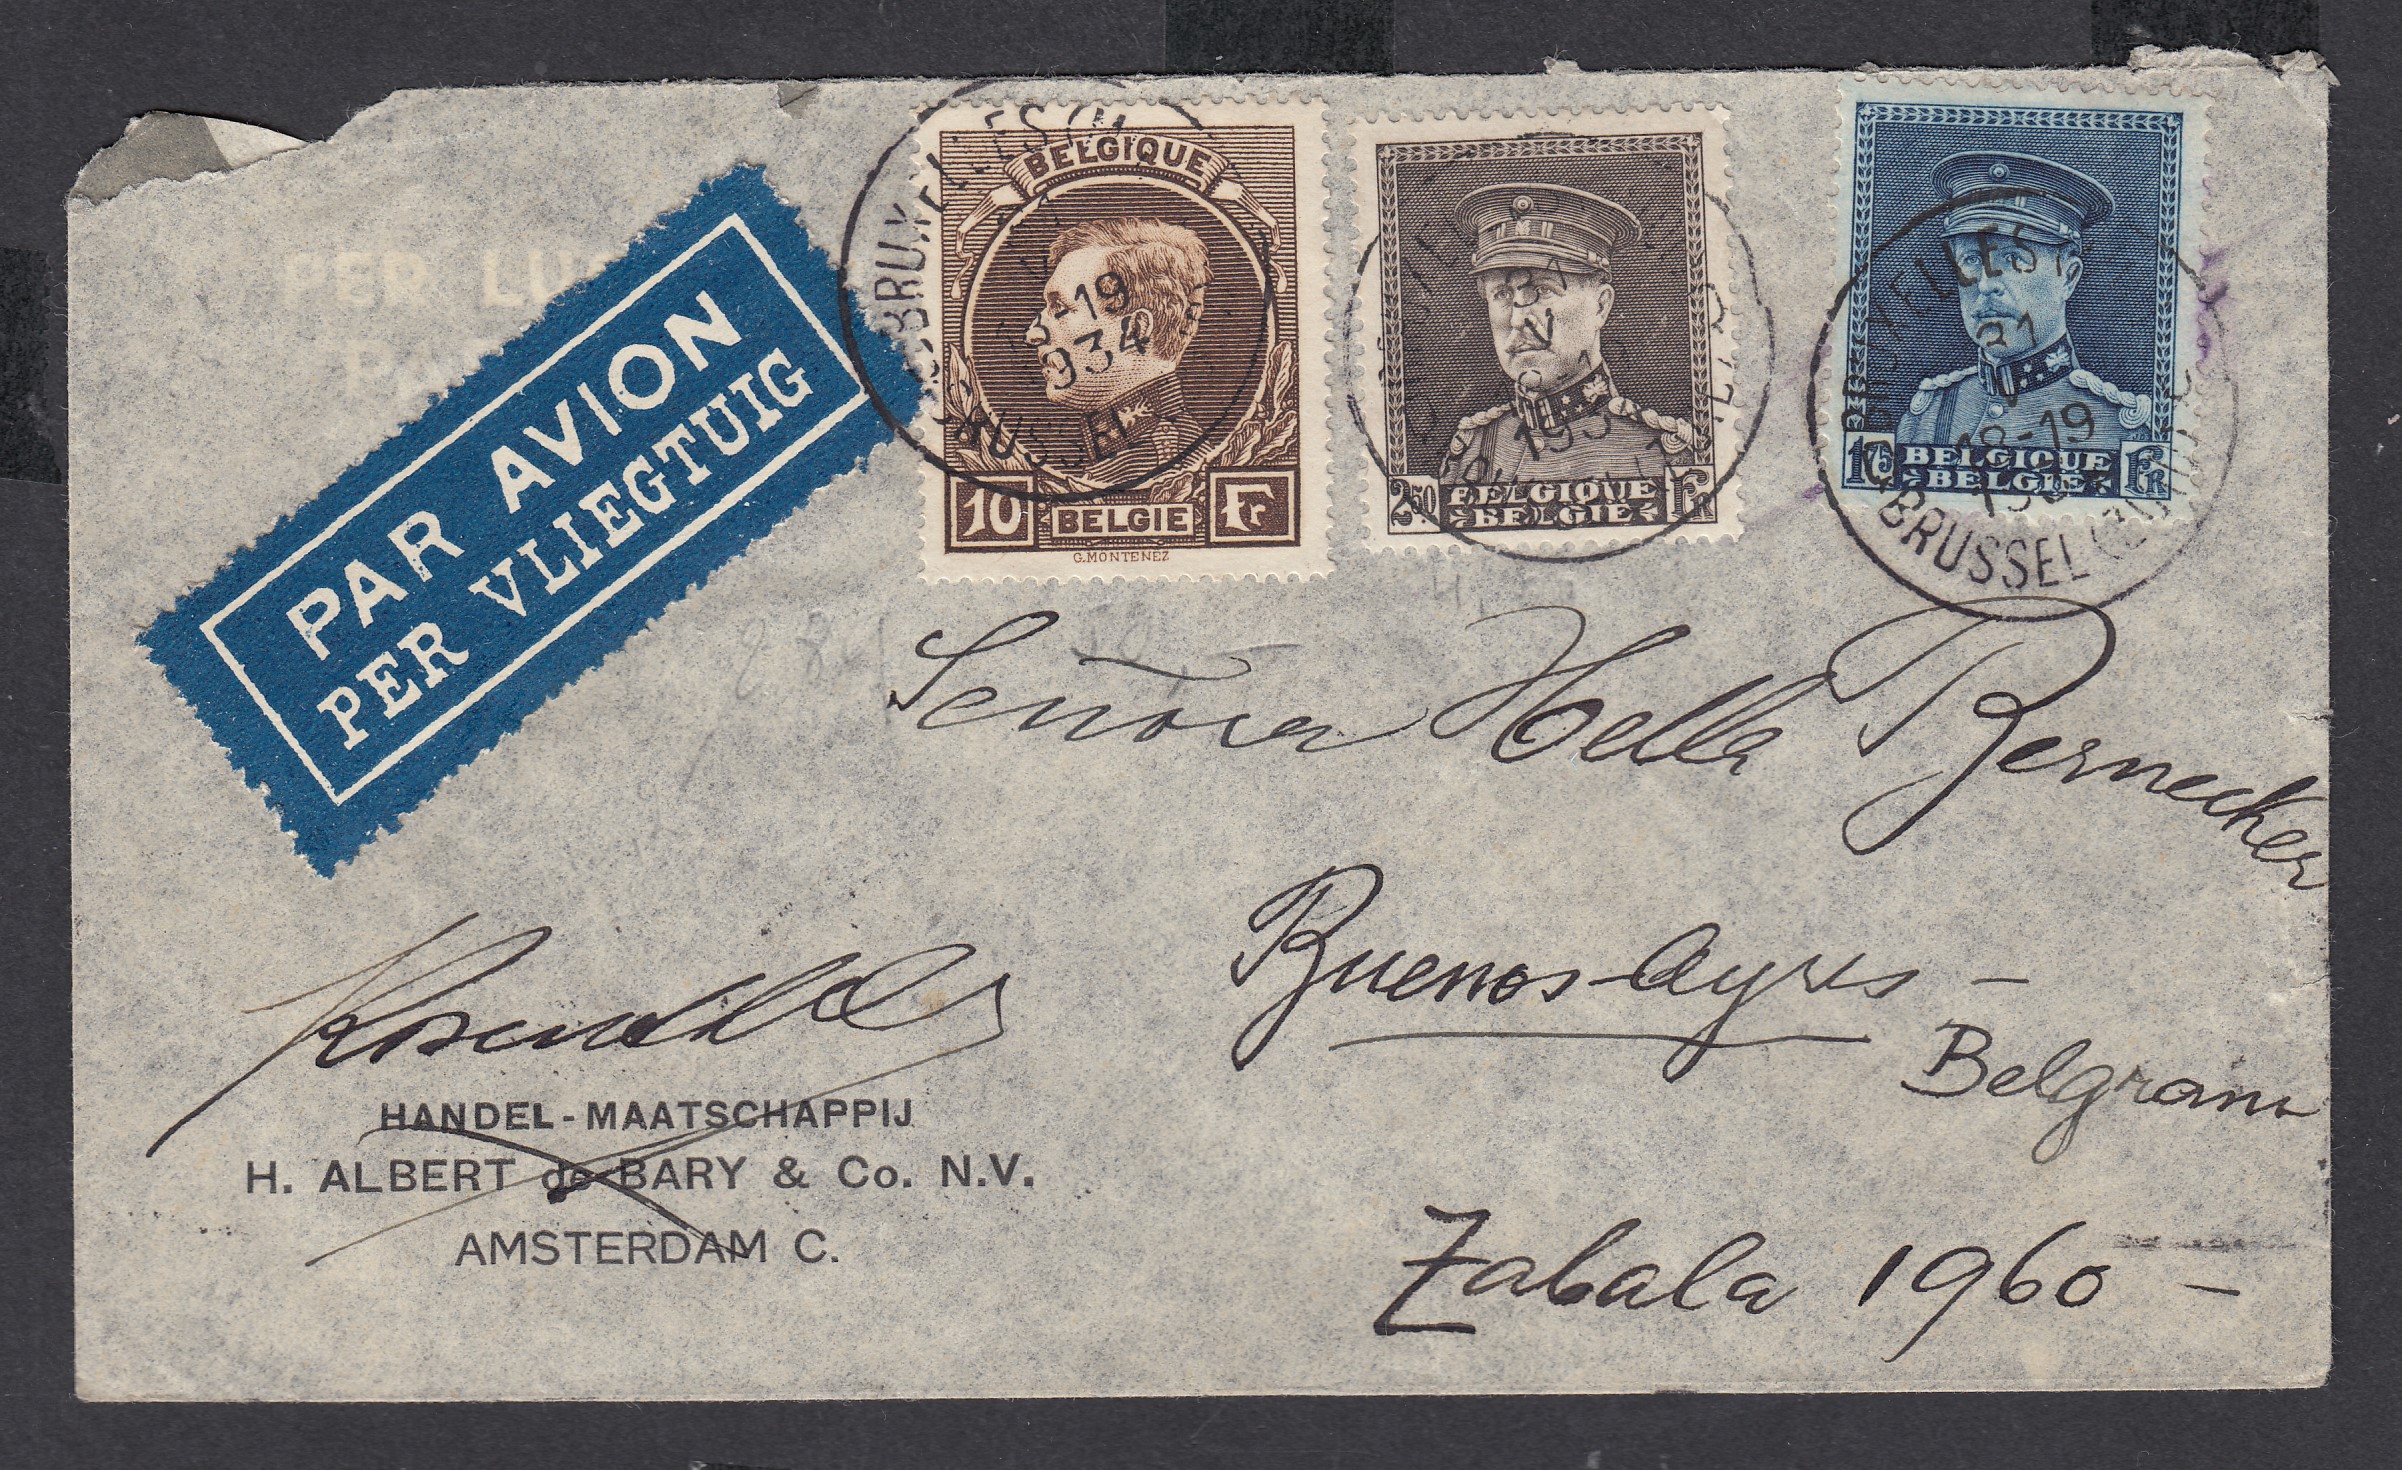 PER LU
PAR AVION
PER VLIEGTUIG
BELGIQUE
10 BELGIE Fr
G. MONTENEZ
BRUXELLES
18-19
1934
BRUSSEL
2.50 BELGIQUE Fr
BELGIE
31
V
193
1.75 BELGIQUE Fr
BELGIE
BRUXELLES
31
V
18-19
BRUSSEL
Señora Hella Bernecker
Buenos-Ayres -
Belgrano
Zabala 1960 -
HANDEL-MAATSCHAPPIJ
H. ALBERT de BARY & Co. N.V.
AMSTERDAM C.